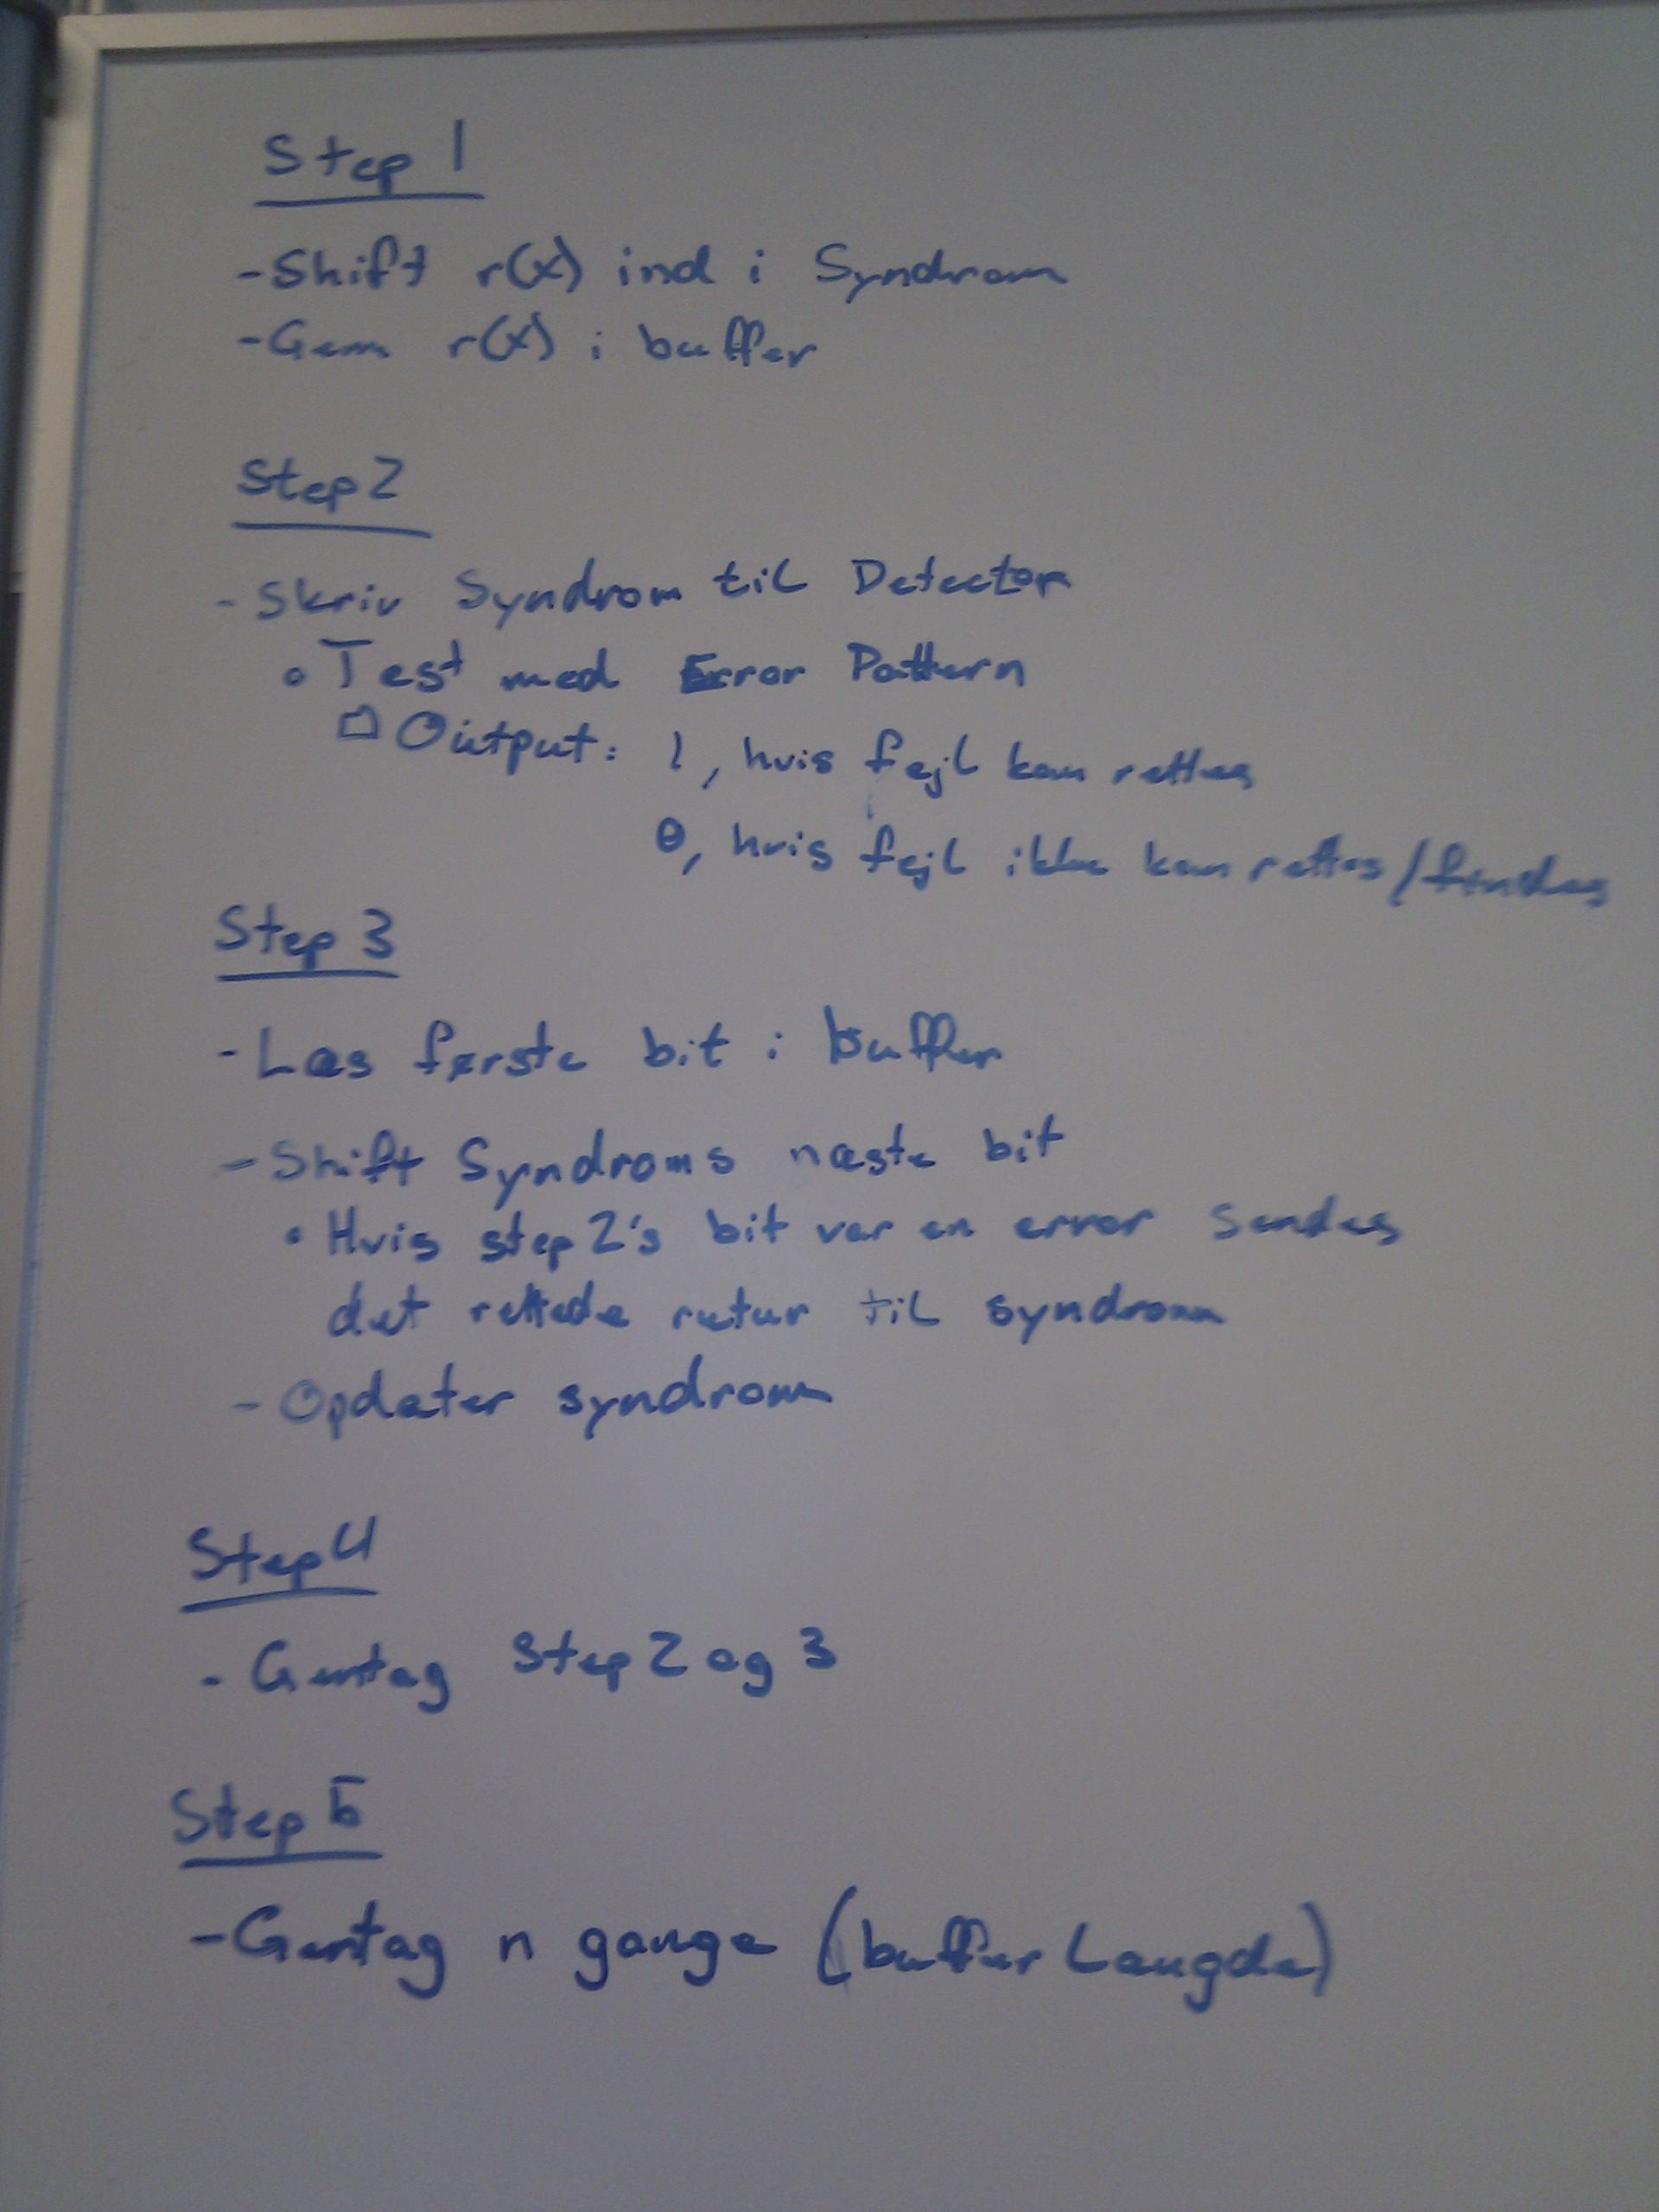 Step 1
- Shift r(x) ind i Syndrom
- Gem r(x) i buffer
Step 2
- Skriv Syndrom til Detector
• Test med Error Pattern
□ Output: 1, hvis fejl kan rettes
0, hvis fejl ikke kan rettes/findes
Step 3
- Læs første bit i buffer
- Shift Syndroms næste bit
• Hvis step 2's bit var en error sendes
det rettede retur til syndrom
- Opdater syndrom
Step 4
- Gentag Step 2 og 3
Step 5
- Gentag n gange (buffer Længde)